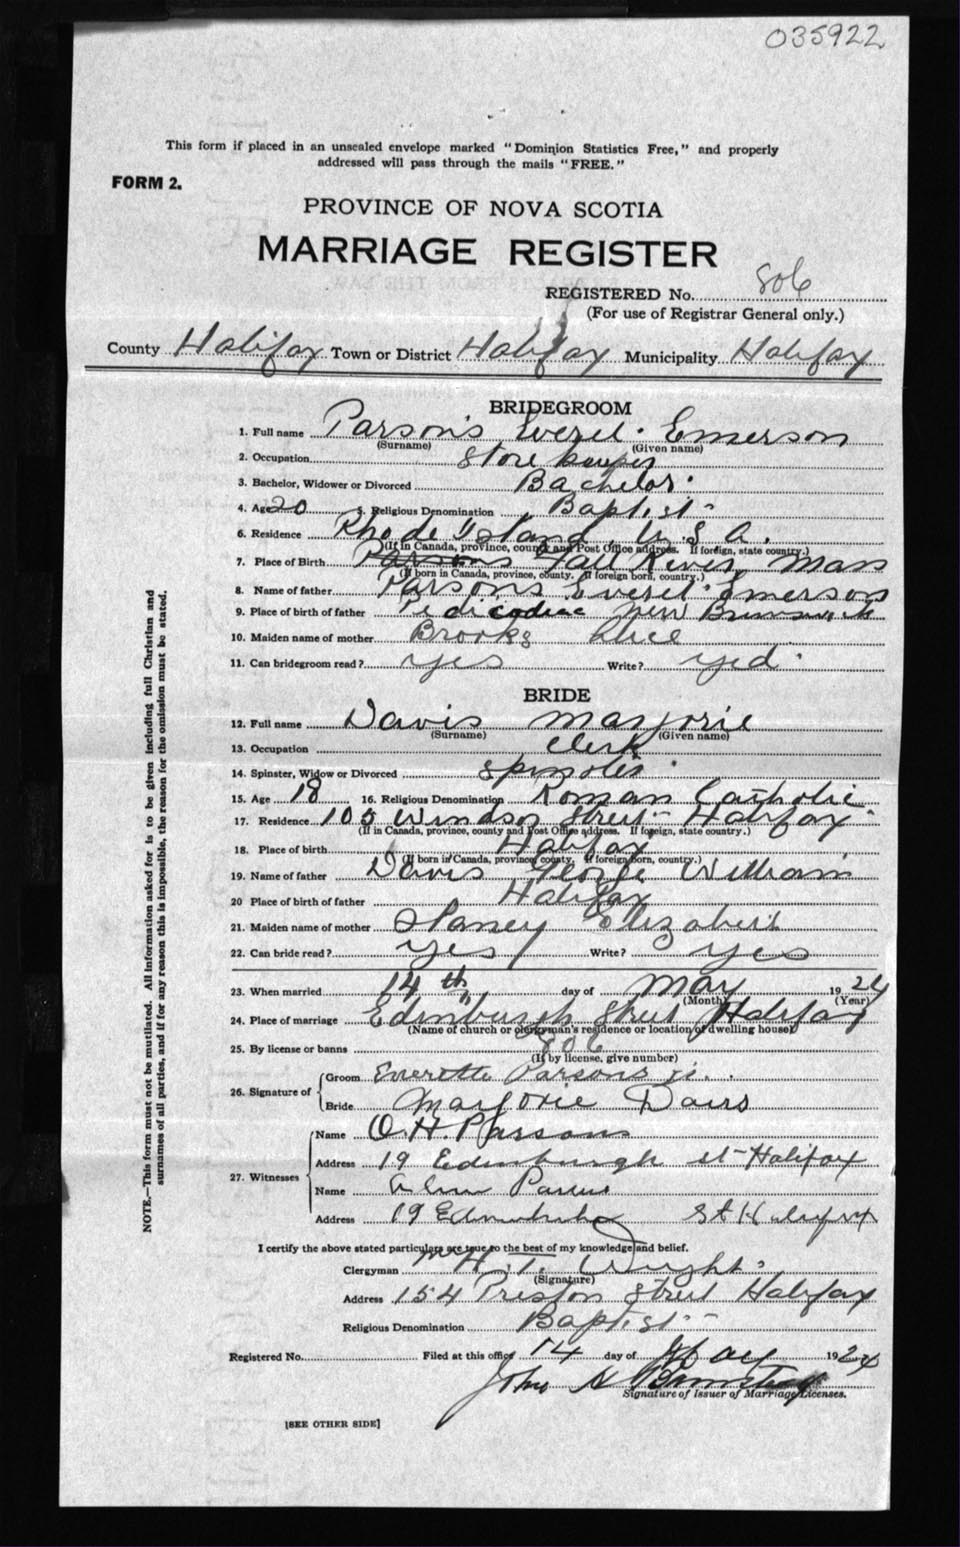 035922
This form if placed in an unsealed envelope marked "Dominion Statistics Free," and properly
addressed will pass through the mails "FREE."
FORM 2.
PROVINCE OF NOVA SCOTIA
MARRIAGE REGISTER
REGISTERED No. 806
(For use of Registrar General only.)
County Halifax Town or District Halifax Municipality Halifax
BRIDEGROOM
1. Full name Parsons Everel Emerson
(Surname) (Given name)
2. Occupation Store keeper
3. Bachelor, Widower or Divorced Bachelor
4. Age 20 5. Religious Denomination Baptist
6. Residence Rhode Island U.S.A.
(If in Canada, province, county and Post Office address. If foreign, state country.)
7. Place of Birth Parsons Fall River, Mass
(If born in Canada, province, county. If foreign born, country.)
8. Name of father Parsons Everel Emerson
9. Place of birth of father Peticodiac New Brunswick
10. Maiden name of mother Brooks
11. Can bridegroom read? yes Write? yes
BRIDE
12. Full name Davis Marjorie
(Surname) (Given name)
13. Occupation clerk
14. Spinster, Widow or Divorced spinster
15. Age 18 16. Religious Denomination Roman Catholic
17. Residence 105 Windsor Street Halifax
(If in Canada, province, county and Post Office address. If foreign, state country.)
18. Place of birth Halifax
(If born in Canada, province, county, If foreign born, country.)
19. Name of father Davis George William
20 Place of birth of father Halifax
21. Maiden name of mother Elizabeth
22. Can bride read? yes Write? yes
23. When married 14th day of May 1924
(Month) (Year)
24. Place of marriage Edinburgh Street Halifax
(Name of church or clergyman's residence or location of dwelling house)
25. By license or banns 806
(If by license, give number)
26. Signature of Groom Everette Parsons jr.
Bride Marjorie Davis
27. Witnesses Name O.H. Parsons
Address 19 Edinburgh st Halifax
Name
Address 19 Edinburgh St Halifax
I certify the above stated particulars are true to the best of my knowledge and belief.
Clergyman H. T. Wright
(Signature)
Address 154 Preston Street Halifax
Religious Denomination Baptist
Registered No. Filed at this office 14 day of May 1924
John A
Signature of Issuer of Marriage Licenses.
[SEE OTHER SIDE]
NOTE.—This form must not be mutilated. All information asked for is to be given including full Christian and
surnames of all parties, and if for any reason this is impossible, the reason for the omission must be stated.